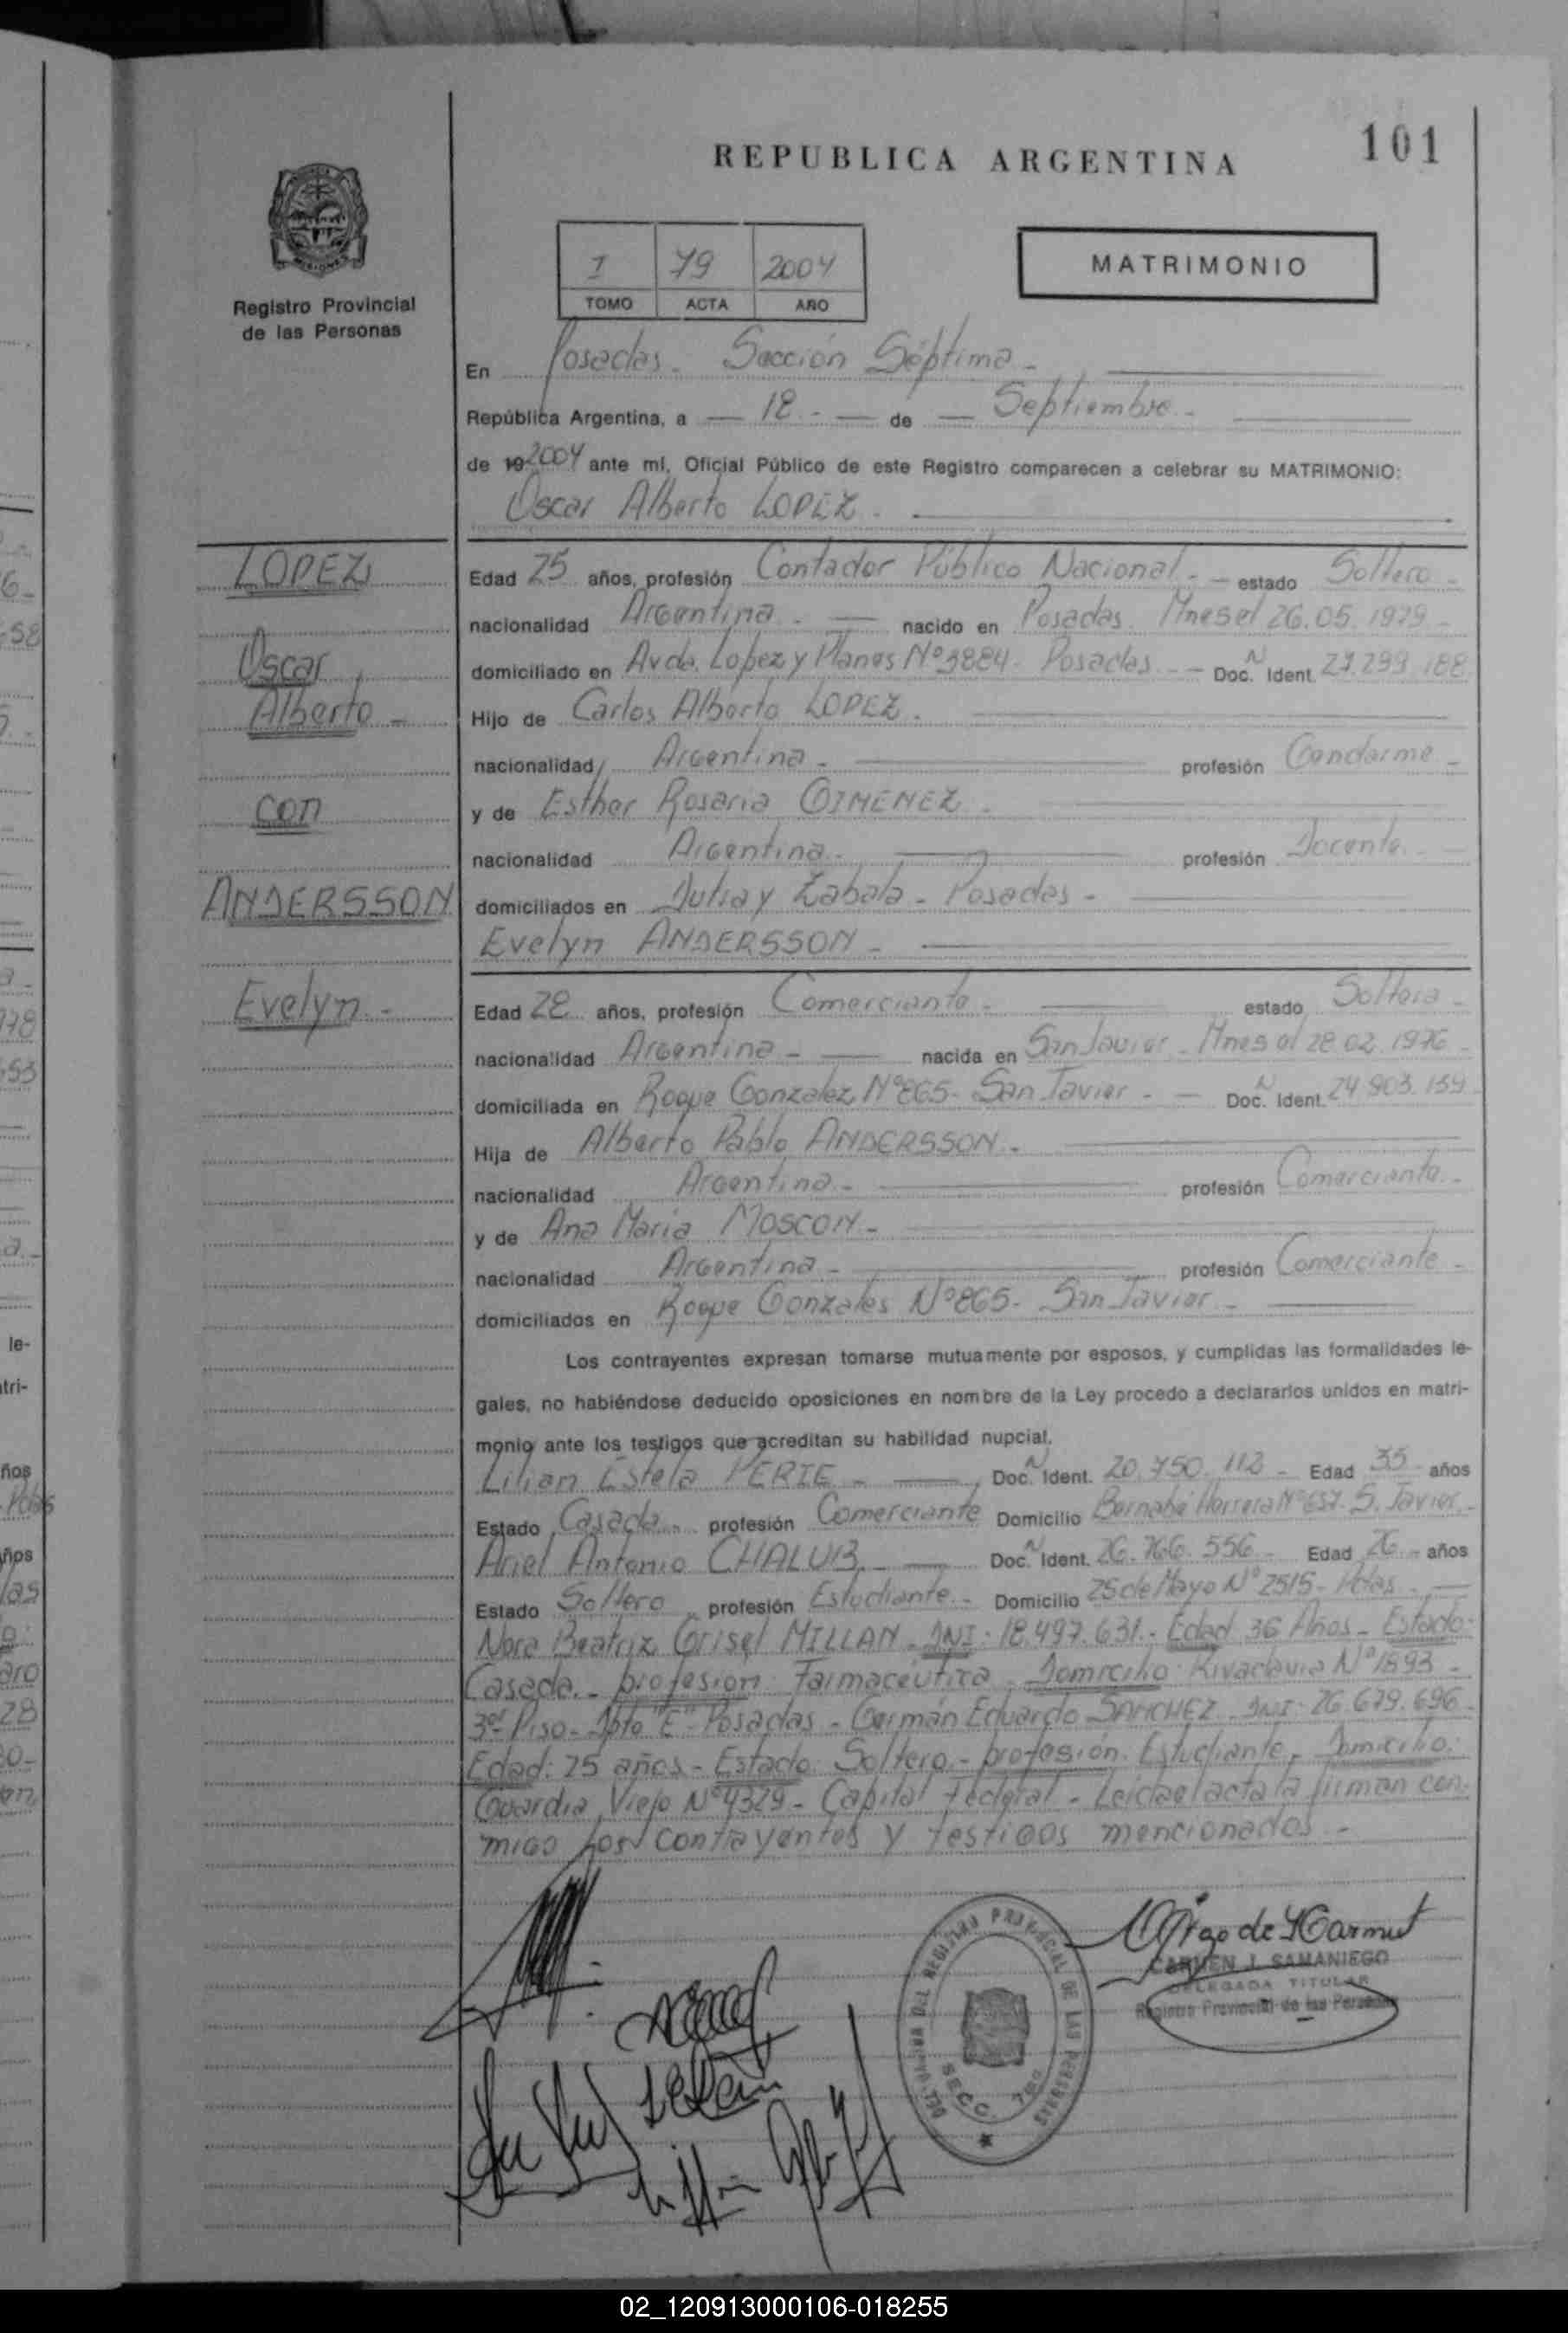 101
REPUBLICA ARGENTINA
MISIONES
Registro Provincial
de las Personas
I 79 2004
TOMO ACTA AÑO
MATRIMONIO
En Posadas - Sección Séptima -
República Argentina, a — 18 - — de — Septiembre -
de 19 2004 ante mí, Oficial Público de este Registro comparecen a celebrar su MATRIMONIO:
Oscar Alberto LOPEZ -
LOPEZ
Oscar
Alberto -
con
ANDERSSON
Evelyn -
Edad 25 años, profesión Contador Público Nacional - estado Soltero -
nacionalidad Argentina - nacido en Posadas. Mnes el 26.05.1979 -
domiciliado en Avda. Lopez y Planes Nº 3884 - Posadas - Doc. N Ident. 27.299.188
Hijo de Carlos Alberto LOPEZ.
nacionalidad Argentina - profesión Gendarme -
y de Esther Rosaria GIMENEZ -
nacionalidad Argentina - profesión Docente -
domiciliados en y Zabala - Posadas -
Evelyn ANDERSSON -
Edad 28 años, profesión Comerciante - estado Soltera -
nacionalidad Argentina - nacida en San Javier - Mnes el 28.02.1976 -
domiciliada en Roque Gonzalez Nº 865 - San Javier - Doc. N Ident. 24.903.159
Hija de Alberto Pablo ANDERSSON -
nacionalidad Argentina - profesión Comerciante -
y de Ana Maria MOSCON -
nacionalidad Argentina - profesión Comerciante -
domiciliados en Roque Gonzales Nº 865 - San Javier -
Los contrayentes expresan tomarse mutuamente por esposos, y cumplidas las formalidades le-
gales, no habiéndose deducido oposiciones en nombre de la Ley procedo a declararlos unidos en matri-
monio ante los testigos que acreditan su habilidad nupcial.
Lilian Estela PERIE - Doc. N Ident. 20.750.112 - Edad 35 años
Estado Casada - profesión Comerciante Domicilio Bernabé Herrera Nº 657 - S. Javier -
Ariel Antonio CHALUB - Doc. N Ident. 26.766.556 - Edad 26 - años
Estado Soltero - profesión Estudiante - Domicilio 25 de Mayo Nº 2515 - Pdas.
Nora Beatriz Grisel MILLAN - DNI: 18.497.631 - Edad 36 Años - Estado:
Casada - profesion: Farmacéutica - Domicilio: Rivadavia Nº 1893 -
3er Piso - Dpto "E" - Posadas - Germán Eduardo SANCHEZ - DNI: 26.679.696
Edad: 25 años - Estado: Soltero - profesión: Estudiante - Domicilio:
Guardia Vieja Nº 4329 - Capital Federal - Leida el acta la firman con-
migo los contrayentes y testigos mencionados -
REGISTRO PROVINCIAL DE LAS PERSONAS
SECC. 7ma
CARMEN J. SAMANIEGO
DELEGADA TITULAR
Registro Provincial de las Personas
02_120913000106-018255